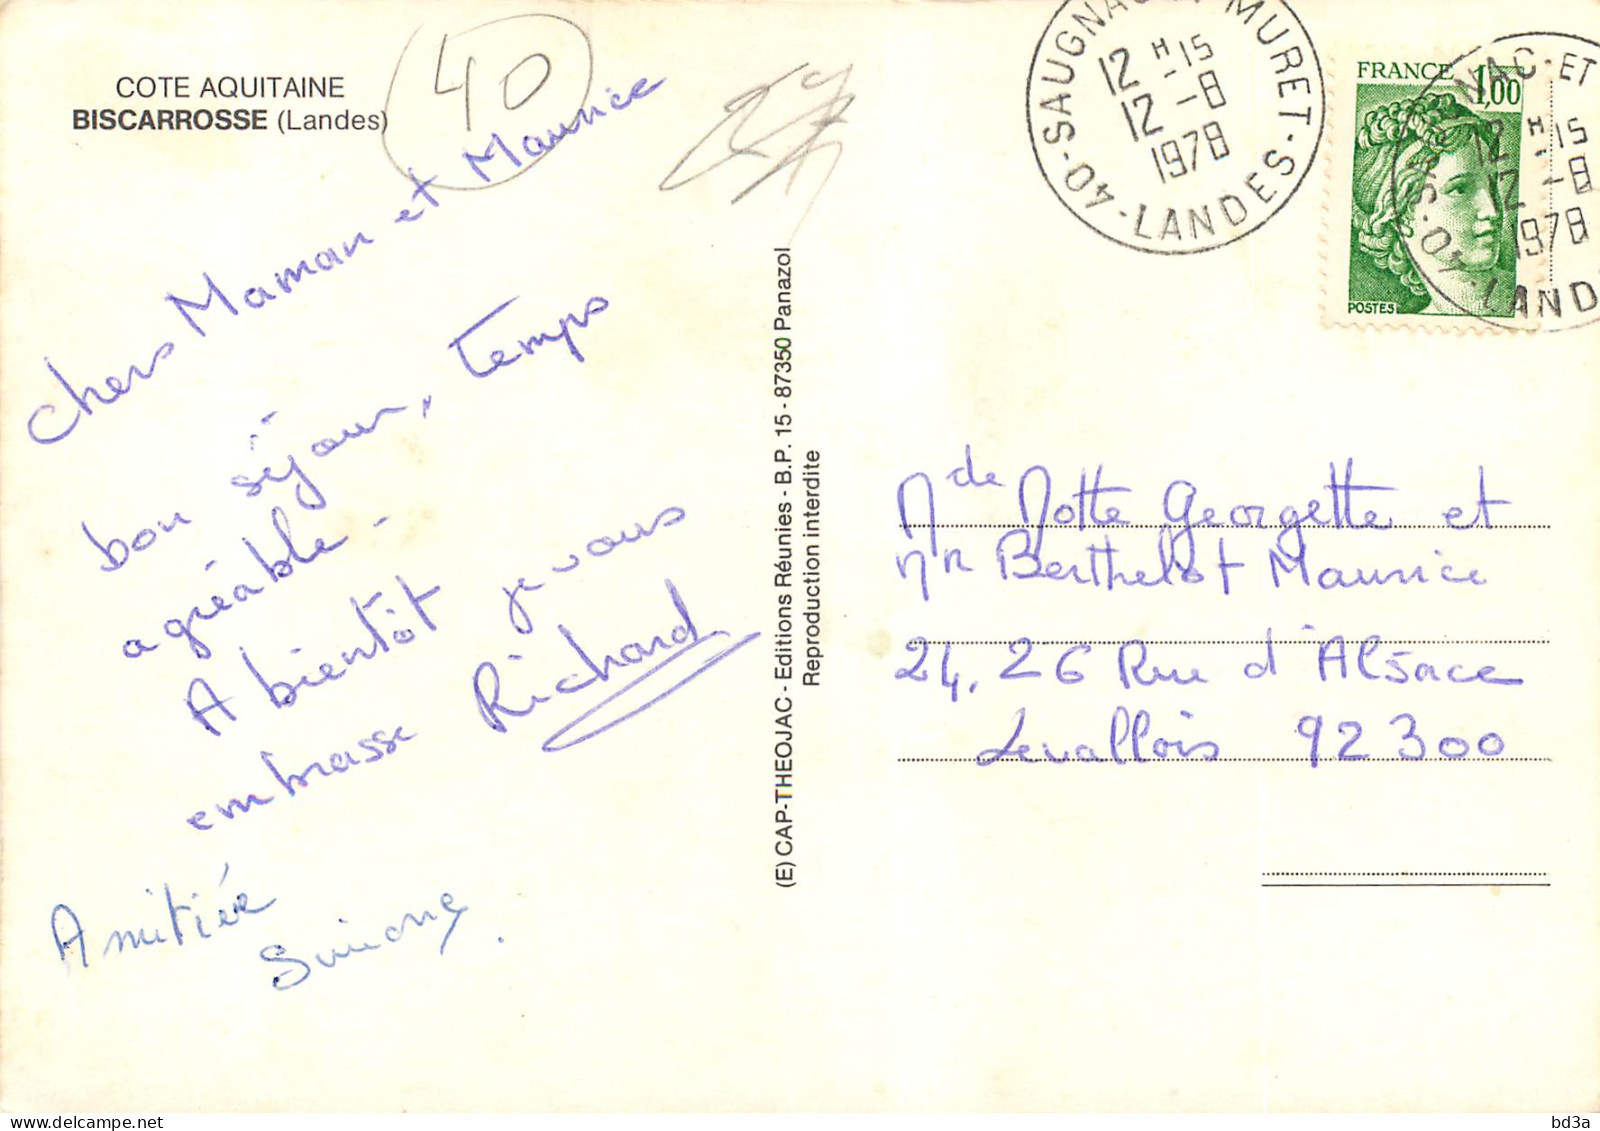 COTE AQUITAINE
BISCARROSSE (Landes)
40
chers Maman et Maurice
bon séjour, temps
agréable -
A bientôt je vous
embrasse Richard
Amitiée
Simone.
(E) CAP-THEOJAC - Editions Réunies - B.P. 15 - 87350 Panazol
Reproduction interdite
SAUGNAC MURET
12 H 15
12 -8
1978
40 - LANDES
FRANCE 1,00
POSTES
NAC-ET
12 H 15
12 -8
1978
40 - LAND
Mde Motte Georgette et
Mr Berthelot Maurice
24, 26 Rue d'Alsace
Levallois 92300
delcampe.net
bd3a